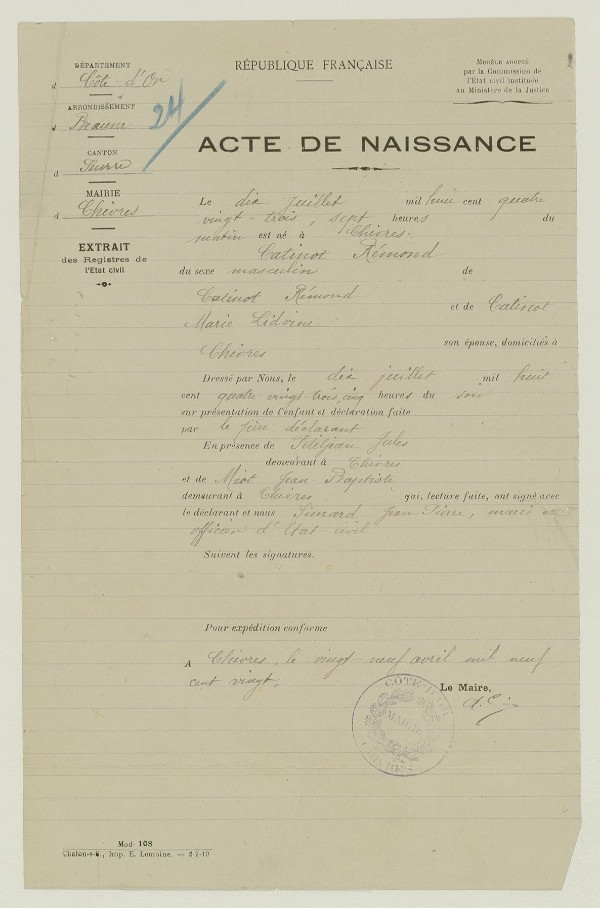 DÉPARTEMENT
d Côte-d'Or
ARRONDISSEMENT
d Beaune
CANTON
d Seurre
MAIRIE
d Chivres
EXTRAIT
des Registres de
l'Etat civil
24
RÉPUBLIQUE FRANÇAISE
MODÈLE ADOPTÉ
par la Commission de
l'État civil instituée
au Ministère de la Justice
ACTE DE NAISSANCE
Le dix juillet mil huit cent quatre
vingt-trois, sept heures du
matin est né à Chivres.
Catinot Rémond
du sexe masculin de
Catinot Rémond
et de Catinot
Marie
son épouse, domiciliés à
Chivres
Dressé par Nous, le dix juillet mil huit
cent quatre vingt-trois, cinq heures du soir
sur présentation de l'enfant et déclaration faite
par le père déclarant
En présence de Jules
demeurant à Chivres
et de Miot Jean-Baptiste
demeurant à Chivres qui, lecture faite, ont signé avec
le déclarant et nous Jean Pierre, maire
officier d'Etat-civil
Suivent les signatures.
Pour expédition conforme
A Chivres, le vingt-neuf avril mil neuf
cent vingt.
Le Maire,
CÔTE-D'OR
MAIRIE
Mod. 108
Chalon-s-S., Imp. E. Lemoine. — 2-2-19